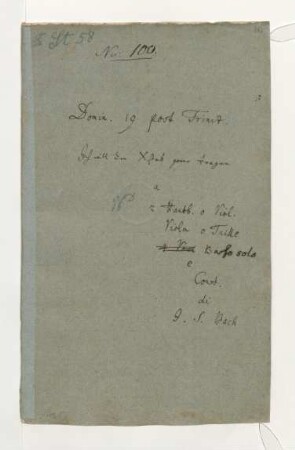 St 58
No. 100.
Domin. 19 post Trinit.
Ich will den Xstab gerne tragen
a
2 Hautb. o Viol.
Viola o Taille
Basso solo
e
Cont.
di
J. S. Bach